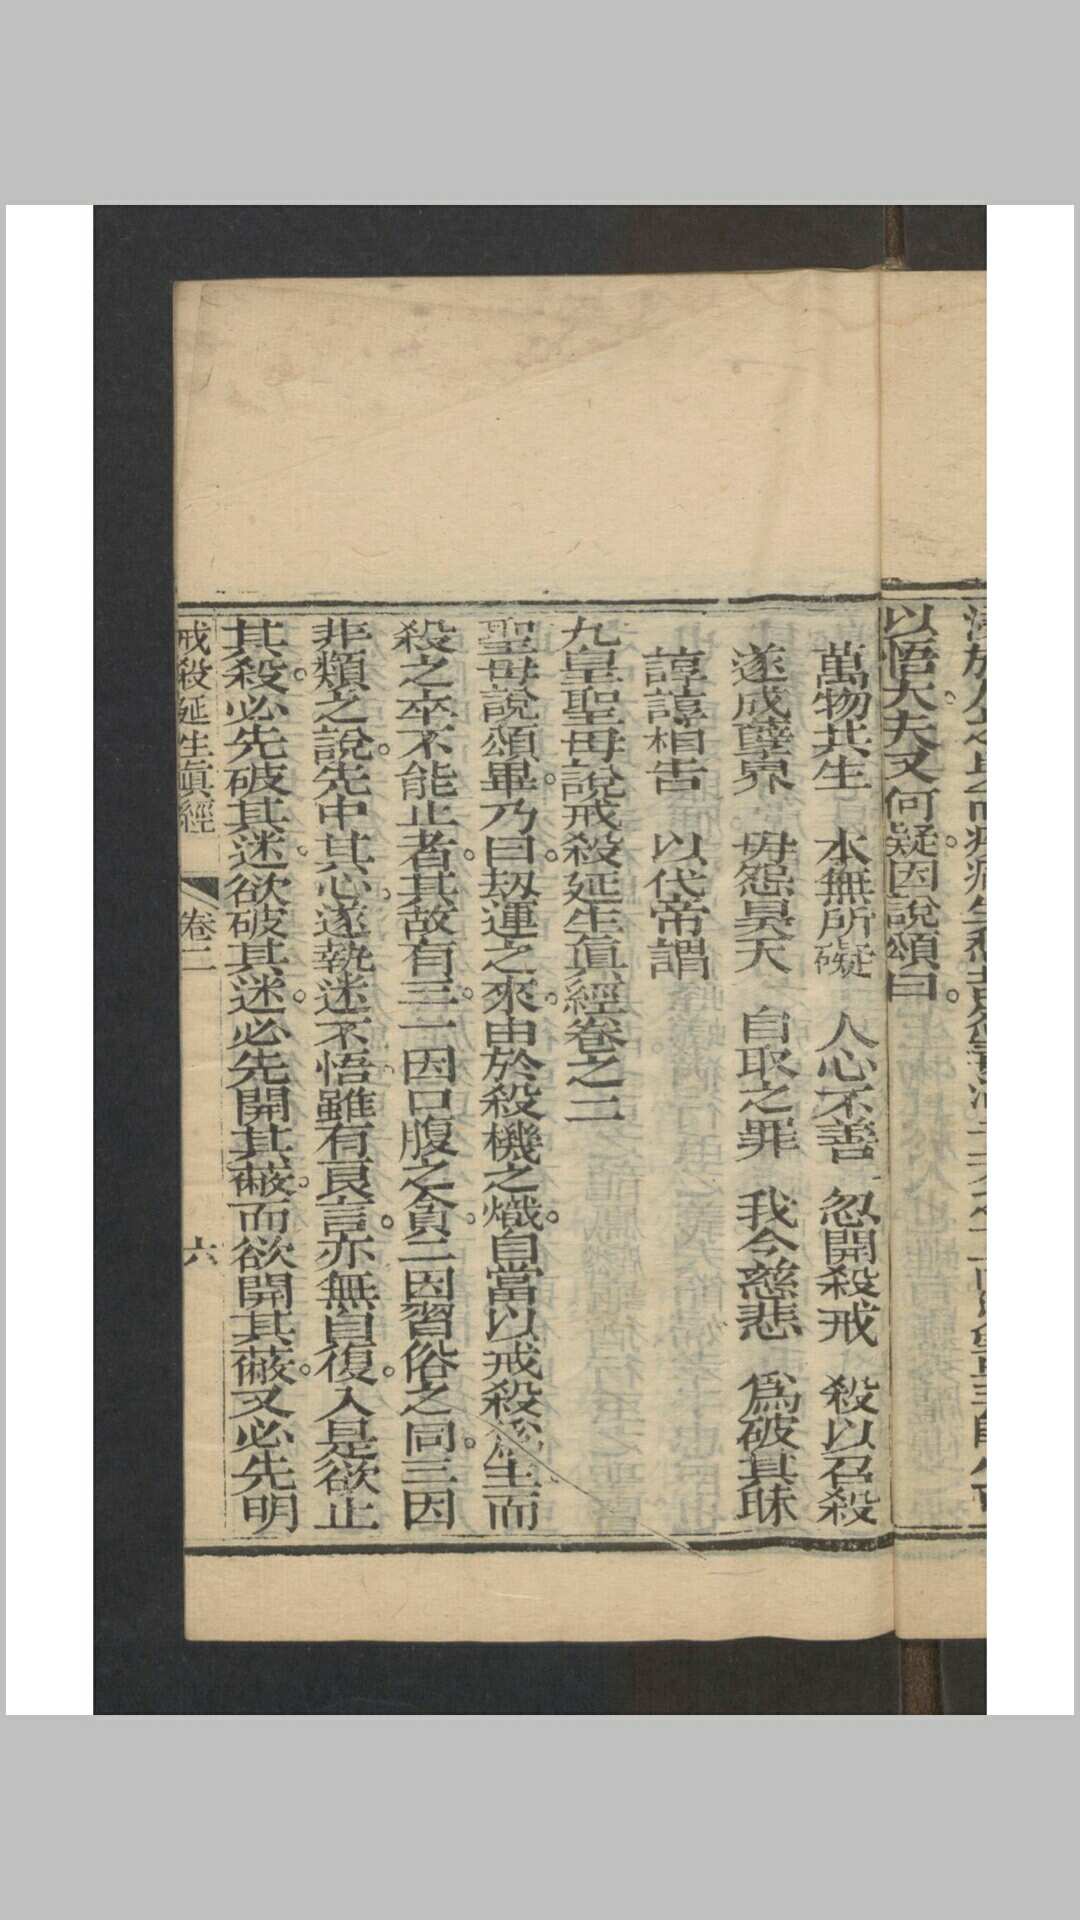 以悟大夫又何疑因說頌曰
萬物共生 本無所礙 人心不善 忽開殺戒 殺以召殺
遂成孽界 毋怨昊天 自取之罪 我今慈悲 為破其昧
諄諄相告 以代帝謂
九皇聖母說戒殺延生真經卷之二
聖母說頌畢。乃曰。刼運之來。由於殺機之熾。自當以戒殺為生。而
殺之卒不能止者。其故有三。一因口腹之貪。二因習俗之同。三因
非類之說。先中其心。遂執迷不悟。雖有良言。亦無自復。入是欲止
其殺。必先破其迷。欲破其迷。必先開其蔽。而欲開其蔽。又必先明
戒殺延生眞經 卷二 六